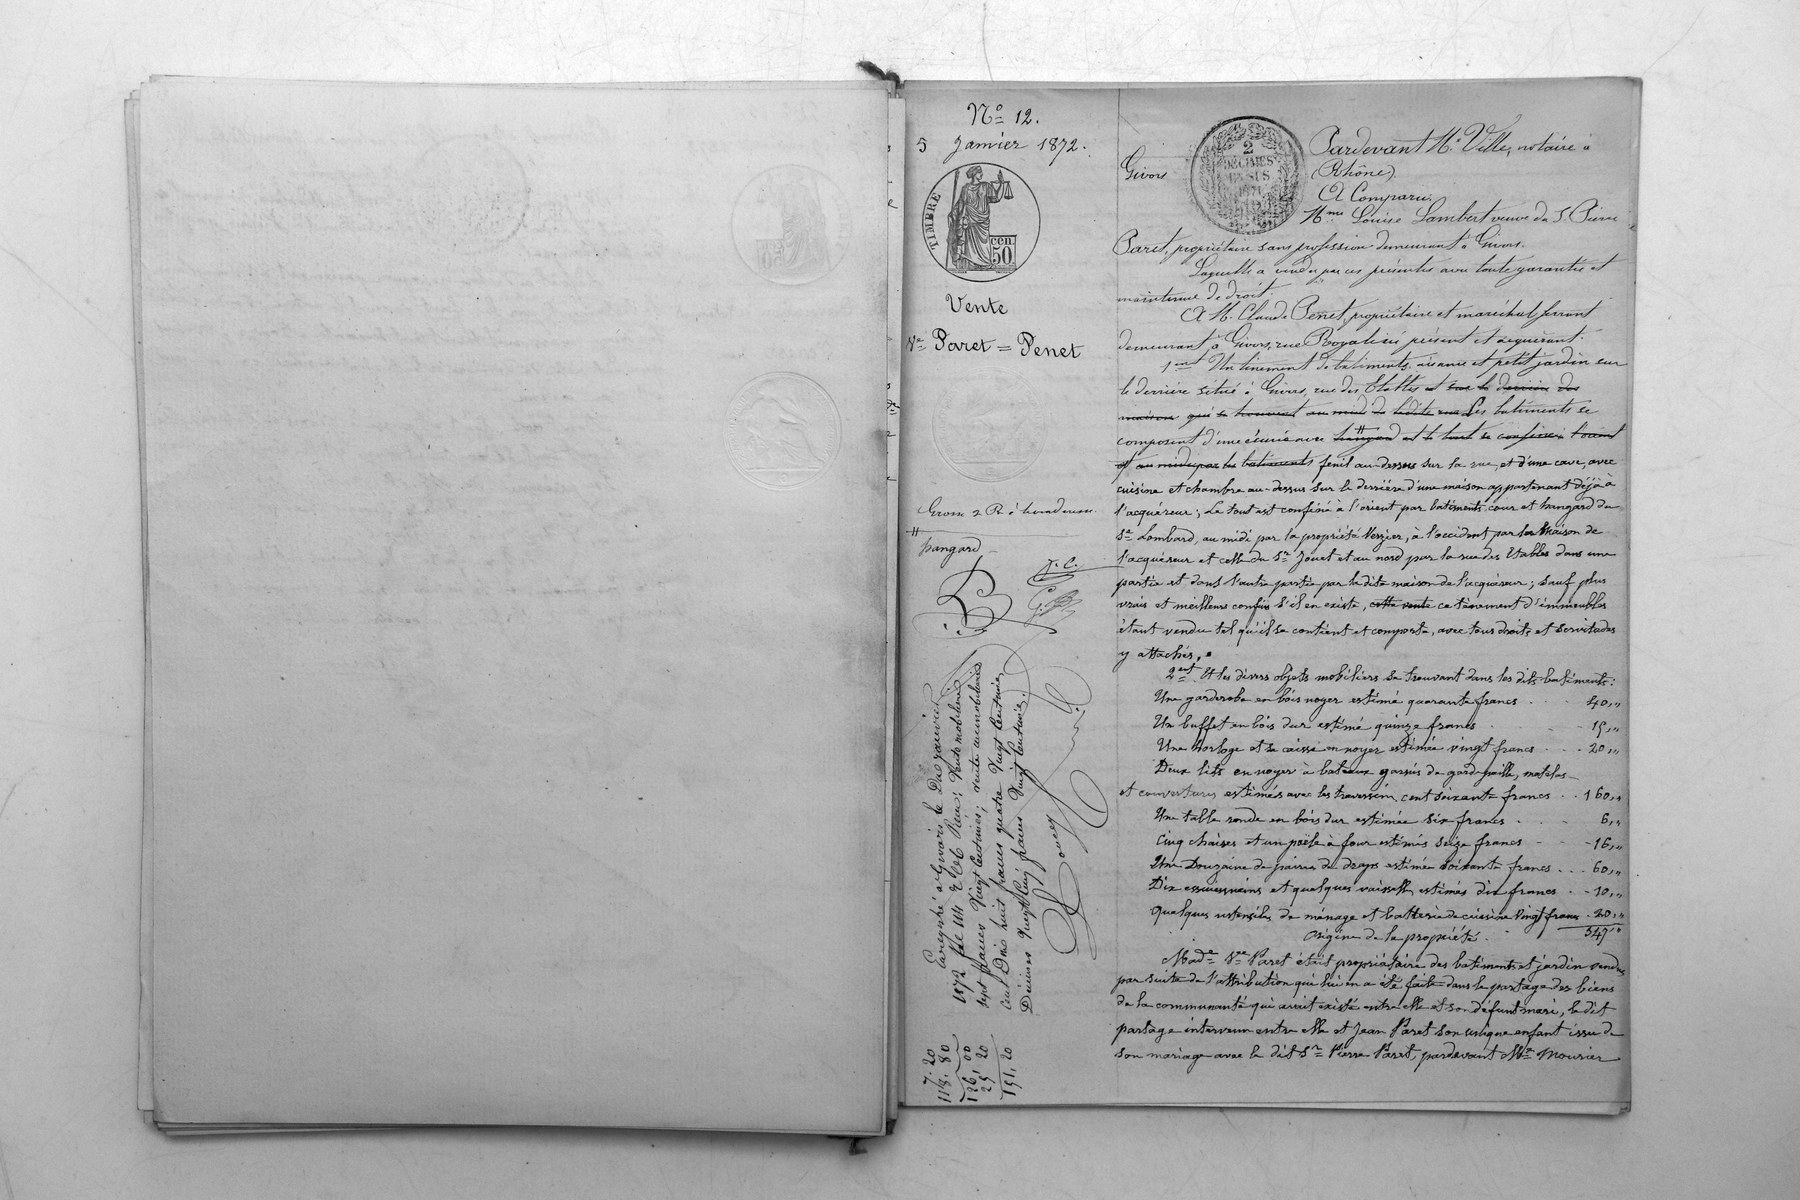 N° 12.
5 Janvier 1872.
TIMBRE
cen.
50
Vente
Vve Paret = Penet
Grosse 2 R
hangard
J. C.
Enregistré à Givors le Dix janvier
1872 fol 114
sept francs Vingt Centimes; vente immobilière
Cent Dix huit francs quatre Vingt Centimes
Décimes Vingt Cinq francs Vingt Centimes.
7. 20
118. 80
126, 00
25 20
151, 20
2
DÉCIMES
EN SUS
1871
Pardevant Me Ville, notaire à
Givors (Rhône)
A Comparu
Mme Louise Lambert veuve de S. Pierre
Paret, propriétaire sans profession demeurant à Givors.
Laquelle a vendu par ces présentes avec toute garantie et
maintenue de droit.
A M. Claude Penet, propriétaire et maréchal ferrant
demeurant à Givors, rue Royale ici présent et acquérant.
1ent Un tinement de batiments, aisance et petit jardin sur
le derrière situé à Givors, rue des Etables et sur le derrière des
maisons qui se trouvent au midi de ladite rue Les batiments se
composent d'une écurie avec hangard et le tout se confine à l'orient
et au midi par les batiments fenil au-dessus sur la rue, et d'une cave, avec
cuisine et chambre au-dessus sur le derrière d'une maison appartenant déjà à
l'acquéreur; Le tout est confiné à l'orient par batiments cour et hangard du
Sr Lombard, au midi par la propriété Verzier, à l'occident par la Maison de
l'acquéreur et celle du Sr Jouet et au nord par la rue des Etables dans une
partie et dans l'autre partie par la dite maison de l'acquéreur; sauf plus
vrais et meilleurs confins s'il en existe, cette vente ce tènement d'immeubles
étant vendu tel qu'il se contient et comporte, avec tous droits et servitudes
y attachés.
2ent Et les divers objets mobiliers se trouvant dans les dits batiments:
Une garderobe en bois noyer estimé quarante francs 40,"
Un buffet en bois dur estimé quinze francs 15,"
Une horloge et sa caisse en noyer estimée vingt francs 20,"
Deux lits en noyer à bateaux garnis de gardepaille, matelas
et couvertures estimés avec les traversins cent soixante francs 160,"
Une table ronde en bois dur estimée six francs 6,"
Cinq chaises et un poële à four estimés seize francs 16,"
Une Douzaine de paires de draps estimée soixante francs 60,"
Dix essuiemains et quelques vaisselle estimés dix francs 10,"
Quelques ustensiles de ménage et batterie de cuisine vingt francs 20,"
347"
Origine de la propriété.
Made Vve Paret était propriétaire des batiments et jardin vendus
par suite de l'attribution qui lui en a été faite dans le partage des biens
de la communauté qui avait existé entre elle et son défunt mari, le dit
partage intervenu entre elle et Jean Paret son unique enfant issu de
son mariage avec le dit Sr Pierre Paret, pardevant Me Mourier